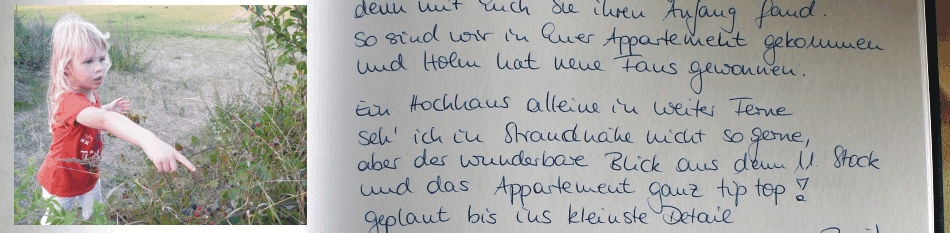 denn mit Euch die ihren Anfang fand.
So sind wir in Euer Appartement gekommen
und Holm hat neue Fans gewonnen.
Ein Hochhaus alleine in weiter Ferne
seh' ich in Strandnähe nicht so gerne,
aber der wunderbare Blick aus dem 11. Stock
und das Appartement ganz tip top!
geplant bis ins kleinste Detail